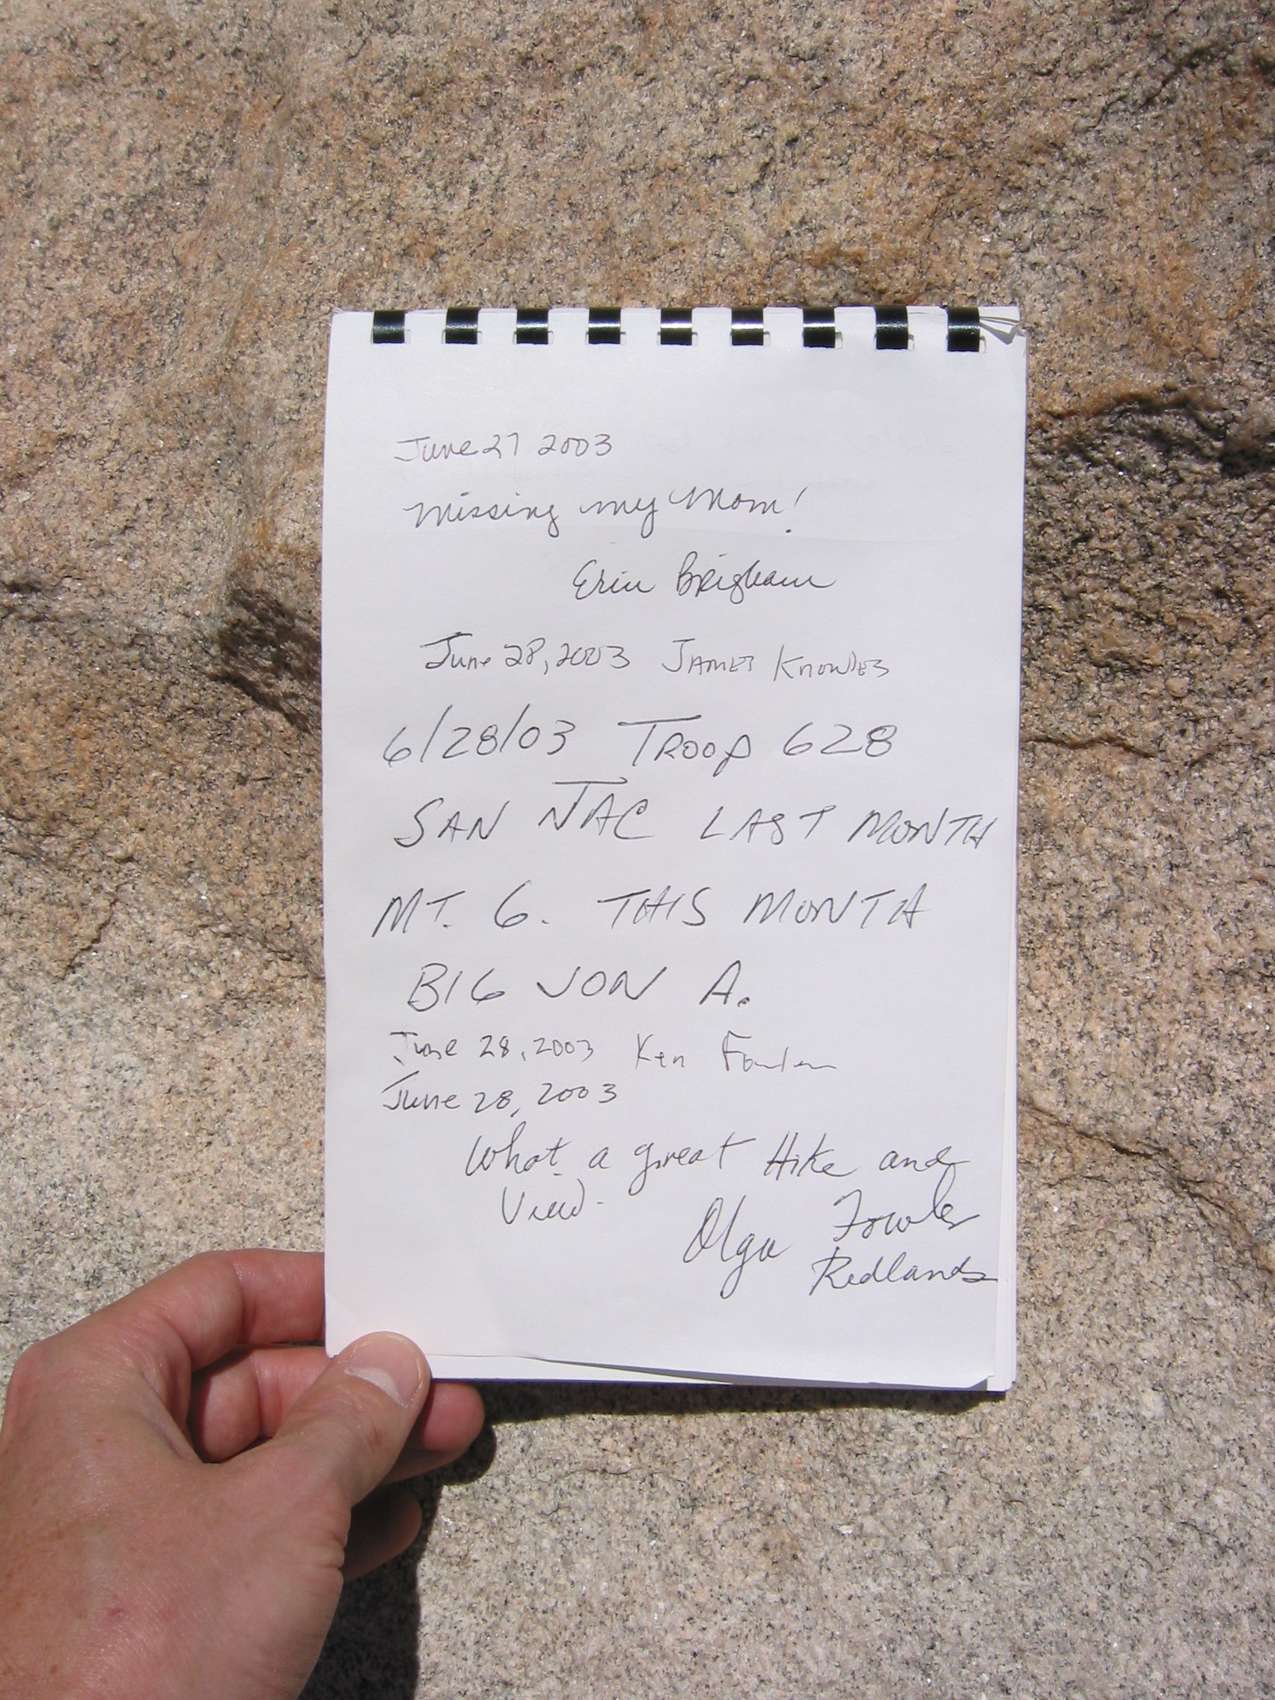 June 27 2003
Missing my Mom!
Erin Brigham
June 28, 2003 James Knowles
6/28/03 TROOP 628
SAN JAC LAST MONTH
MT. G. THIS MONTH
BIG JON A.
June 28, 2003 Ken Fowler
June 28, 2003
What a great Hike and
View.
Olga Fowler
Redlands